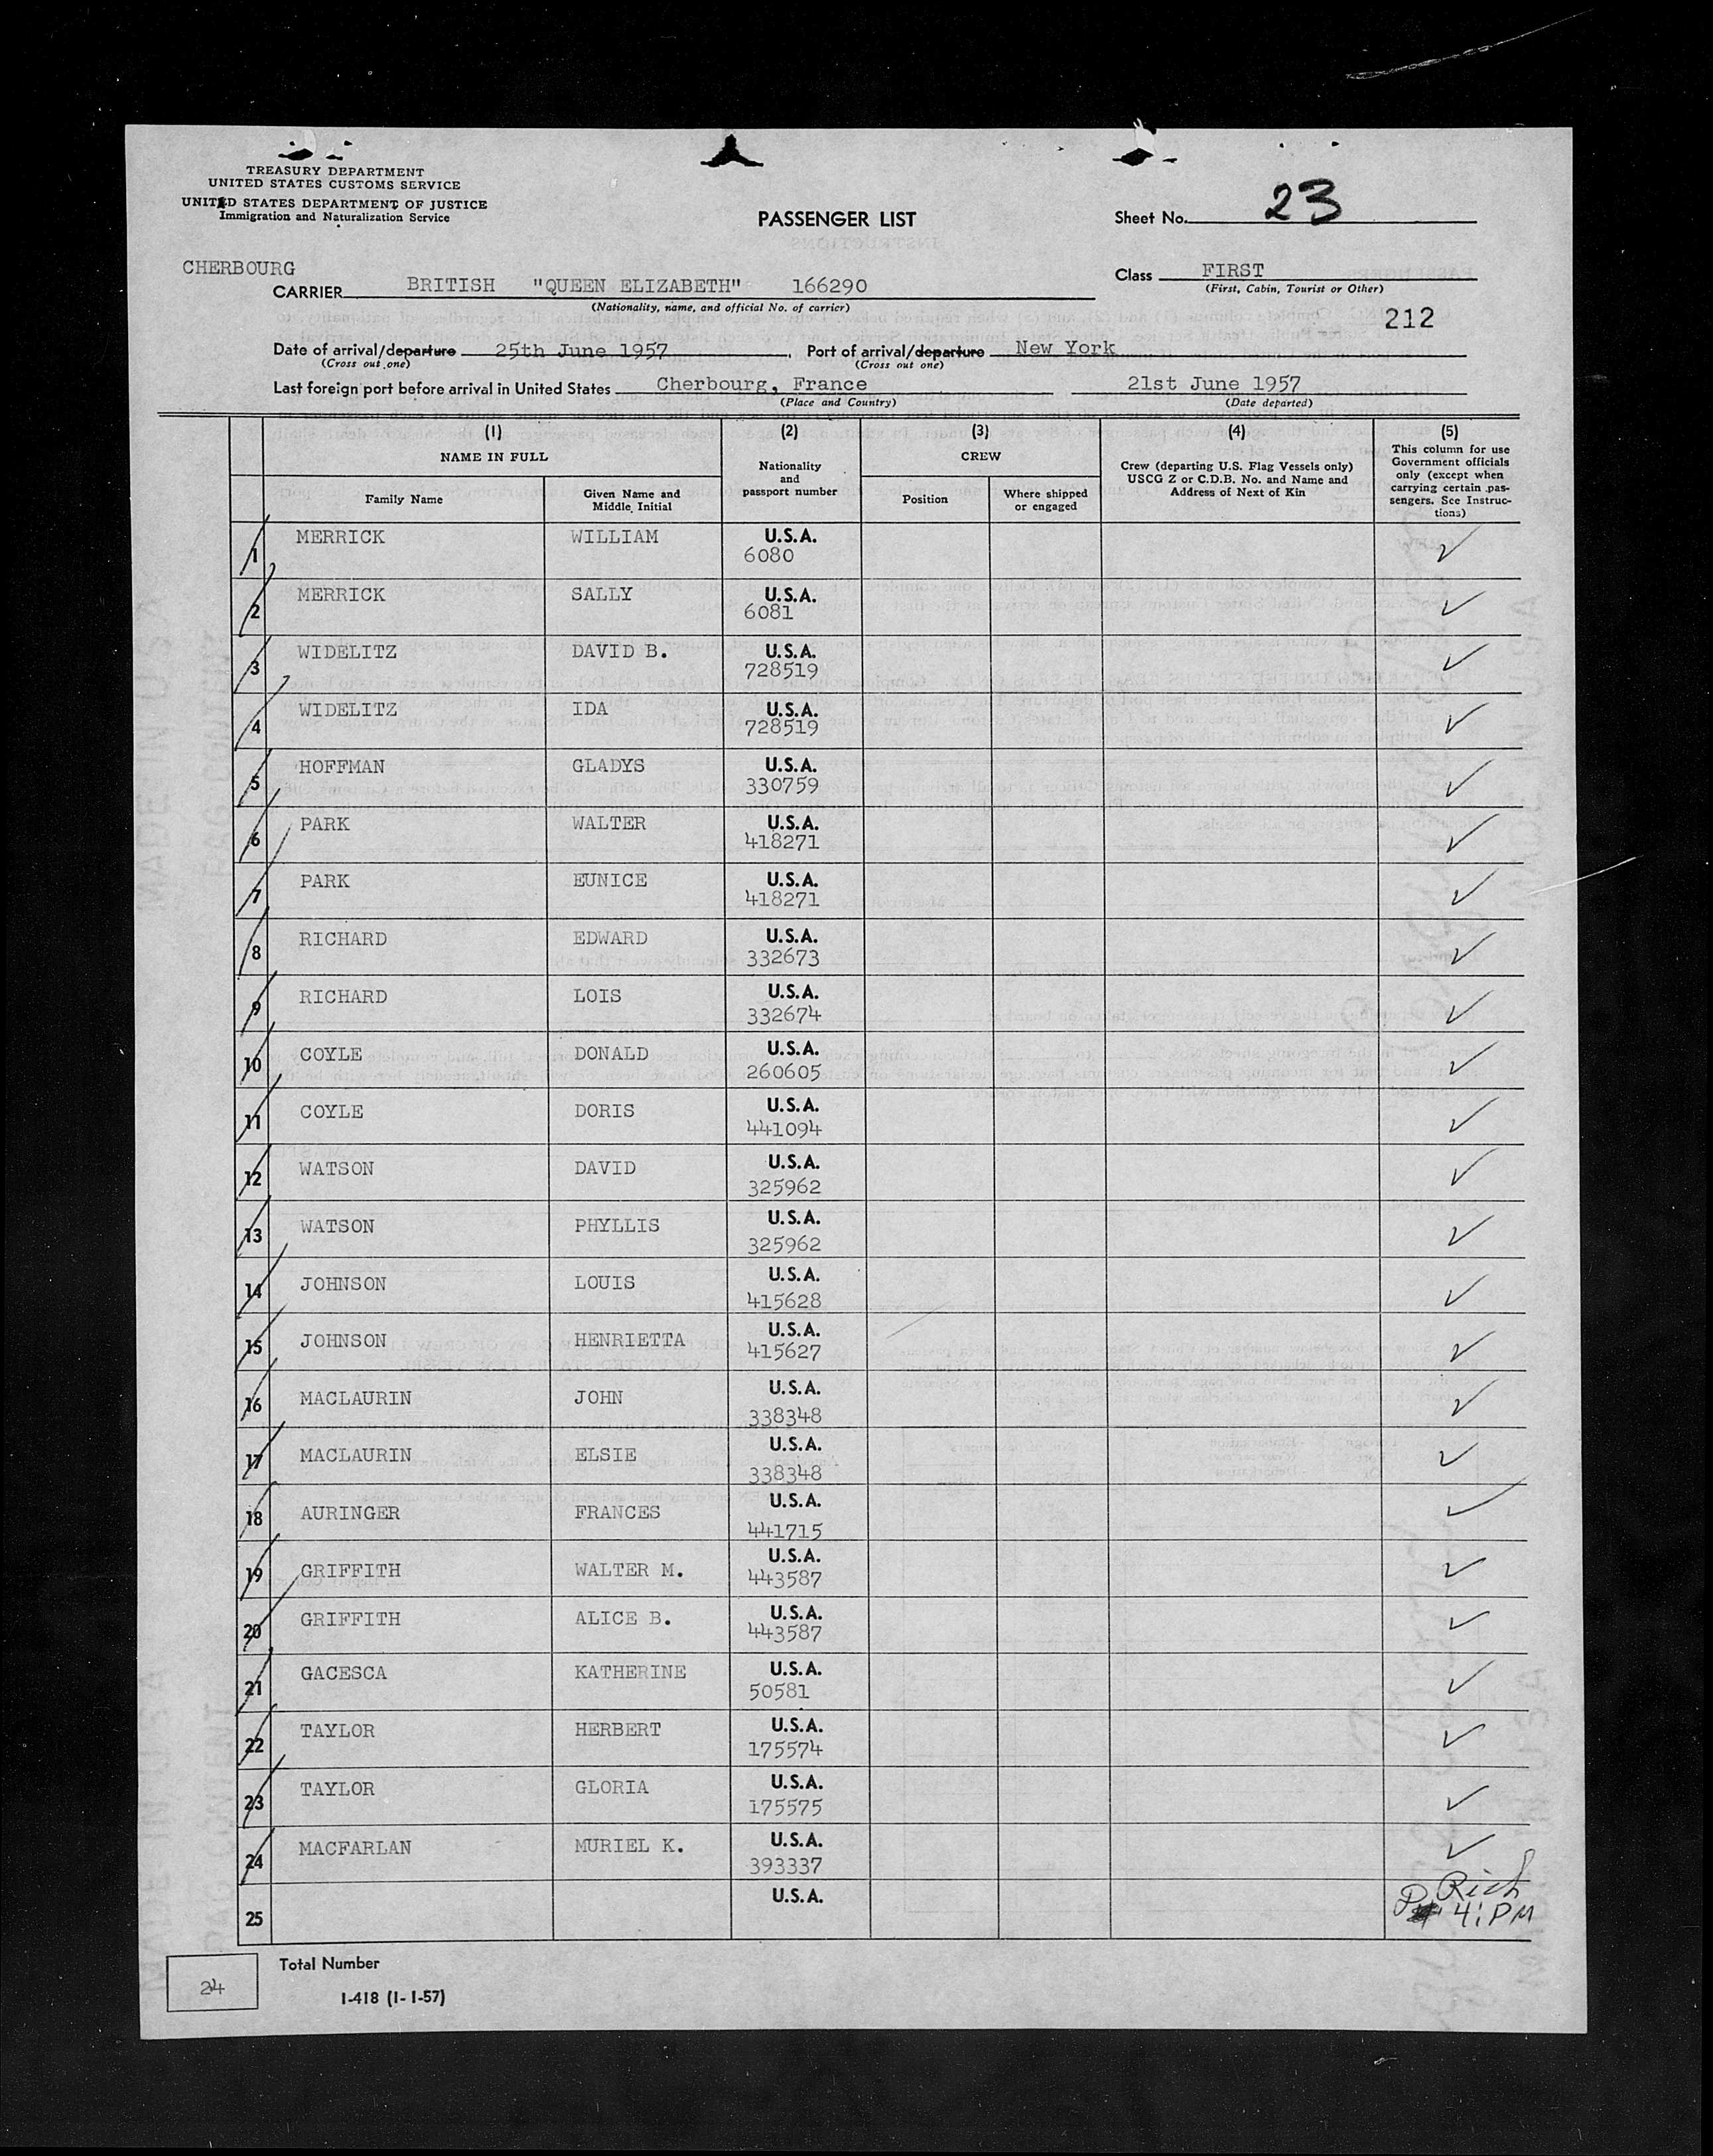 TREASURY DEPARTMENT
UNITED STATES CUSTOMS SERVICE
UNITED STATES DEPARTMENT OF JUSTICE
Immigration and Naturalization Service
PASSENGER LIST
Sheet No. 23
CHERBOURG
CARRIER BRITISH "QUEEN ELIZABETH" 166290
(Nationality, name, and official No. of carrier)
Class FIRST
(First, Cabin, Tourist or Other)
212
Date of arrival/departure 25th June 1957. Port of arrival/departure New York
(Cross out one) (Cross out one)
Last foreign port before arrival in United States Cherbourg, France 21st June 1957
(Place and Country) (Date departed)
(1) (2) (3) (4) (5)
NAME IN FULL
Family Name
Given Name and
Middle Initial
Nationality
and
passport number
CREW
Position
Where shipped
or engaged
Crew (departing U.S. Flag Vessels only)
USCG Z or C.D.B. No. and Name and
Address of Next of Kin
This column for use
Government officials
only (except when
carrying certain pas-
sengers. See Instruc-
tions)
1 MERRICK WILLIAM U.S.A. 6080
2 MERRICK SALLY U.S.A. 6081
3 WIDELITZ DAVID B. U.S.A. 728519
4 WIDELITZ IDA U.S.A. 728519
5 HOFFMAN GLADYS U.S.A. 330759
6 PARK WALTER U.S.A. 418271
7 PARK EUNICE U.S.A. 418271
8 RICHARD EDWARD U.S.A. 332673
9 RICHARD LOIS U.S.A. 332674
10 COYLE DONALD U.S.A. 260605
11 COYLE DORIS U.S.A. 441094
12 WATSON DAVID U.S.A. 325962
13 WATSON PHYLLIS U.S.A. 325962
14 JOHNSON LOUIS U.S.A. 415628
15 JOHNSON HENRIETTA U.S.A. 415627
16 MACLAURIN JOHN U.S.A. 338348
17 MACLAURIN ELSIE U.S.A. 338348
18 AURINGER FRANCES U.S.A. 441715
19 GRIFFITH WALTER M. U.S.A. 443587
20 GRIFFITH ALICE B. U.S.A. 443587
21 GACESCA KATHERINE U.S.A. 50581
22 TAYLOR HERBERT U.S.A. 175574
23 TAYLOR GLORIA U.S.A. 175575
24 MACFARLAN MURIEL K. U.S.A. 393337
25 U.S.A.
Rich
4:PM
24
Total Number
I-418 (1-1-57)